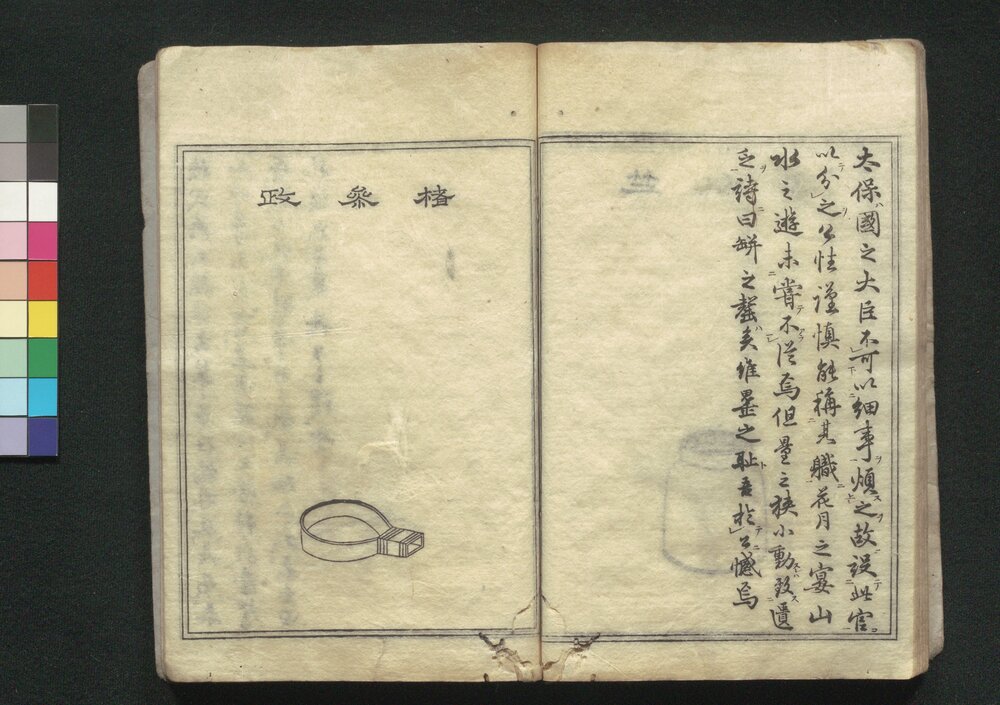 太保國之大臣不可以細事煩之故設此官
以分之公性謹慎能稱其職花月之宴山
水之遊未嘗不從焉但量之狹小動致遺
乏詩曰缾之罄矣維罍之耻吾於公憾焉
楮參政